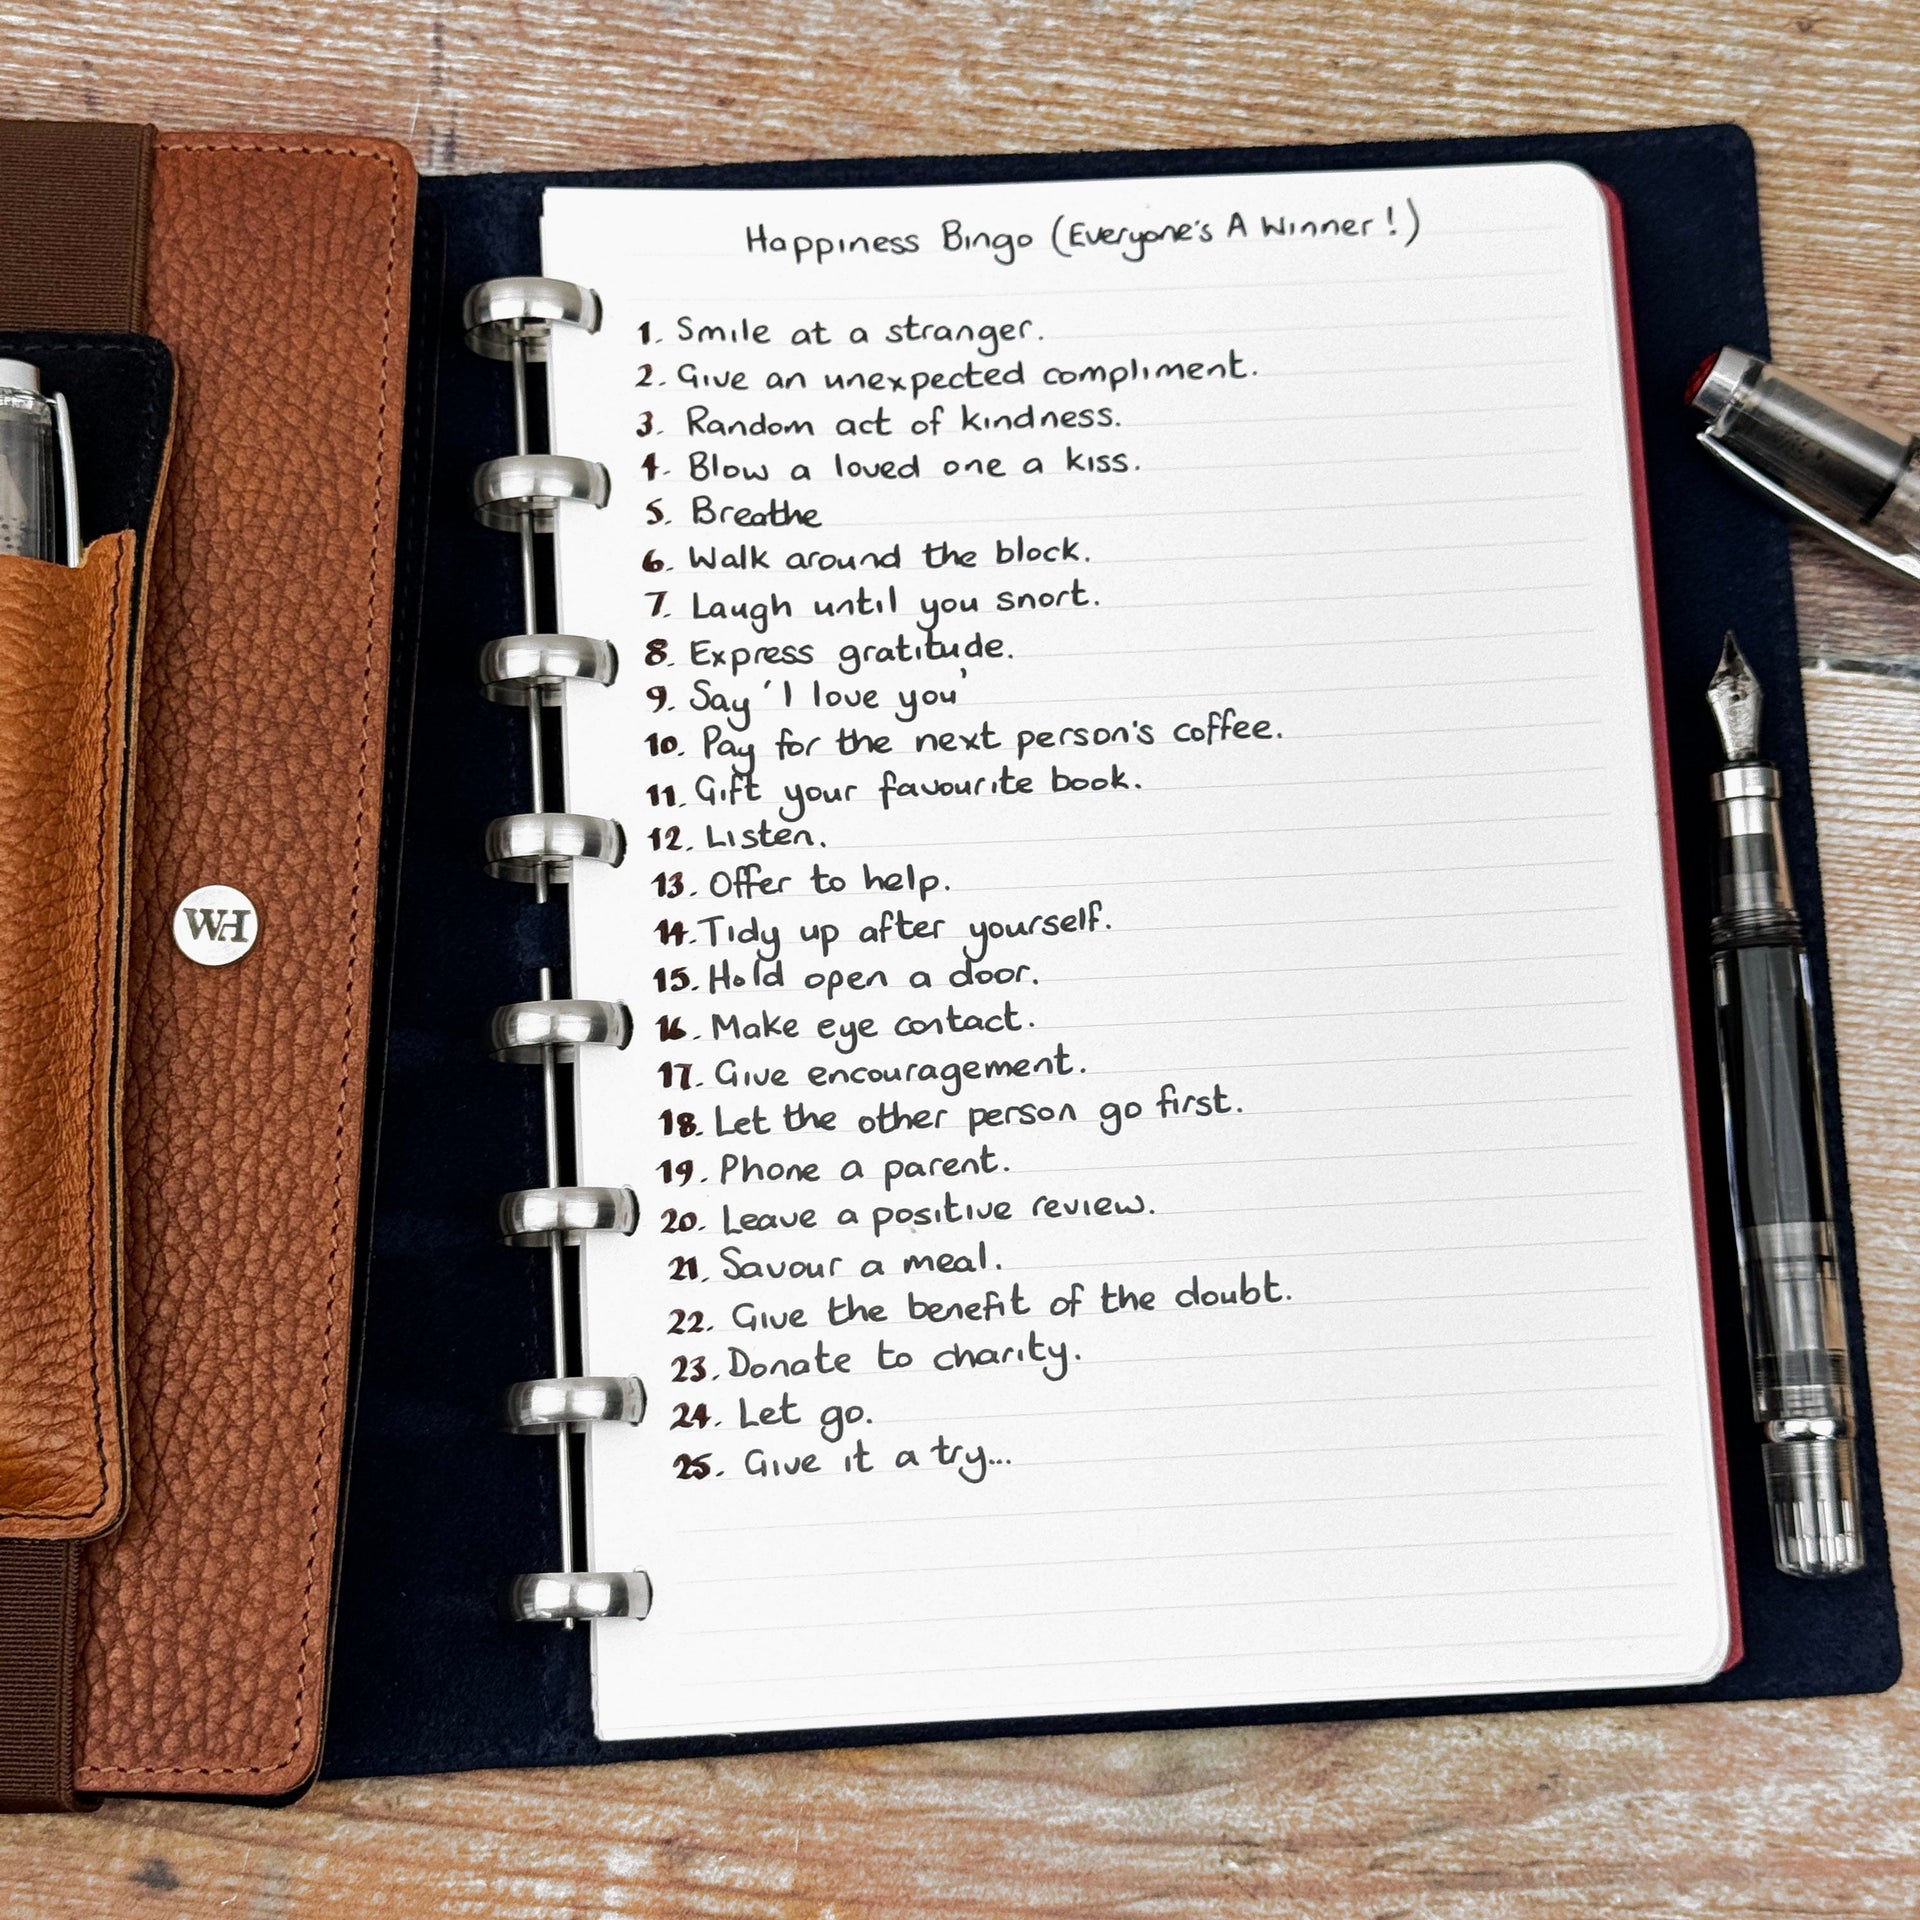 Happiness Bingo (Everyone's A Winner!)
1. Smile at a stranger.
2. Give an unexpected compliment.
3. Random act of kindness.
4. Blow a loved one a kiss.
5. Breathe
6. Walk around the block.
7. Laugh until you snort.
8. Express gratitude.
9. Say 'I love you'
10. Pay for the next person's coffee.
11. Gift your favourite book.
12. Listen.
13. Offer to help.
14. Tidy up after yourself.
15. Hold open a door.
16. Make eye contact.
17. Give encouragement.
18. Let the other person go first.
19. Phone a parent.
20. Leave a positive review.
21. Savour a meal.
22. Give the benefit of the doubt.
23. Donate to charity.
24. Let go.
25. Give it a try...
WH